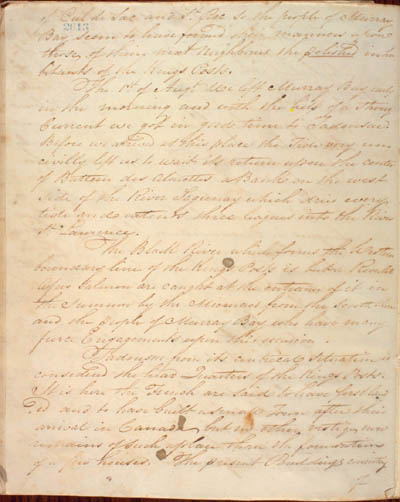 of Cul de Sac and St. Roc So the people of Murray
2613
Bay seem to have formed their manners upon
those of their next Neighbours the polished inha-
bitants of the Kings Posts.
The 1st of Augt. We left Murray Bay early
in the morning and with the help of a strong
Current we got in good time to Tadousac.
Before we arrived at this place the Tide very un-
civilly left us to wait its return upon the
of Batture des Aluettes a Bank on the west
Side of the River Saguenay which dries every
tide and extends three leagues into the River
St. Lawrence.
The Black River which forms the Western
boundary line of the Kings Posts is but a Rivulet
Salmon are caught at the entrance of it in
the Summer by the Micmacs from the South Shore
and the people of Murray Bay who have many
fierce Engagements upon this occasion.
Tadousac from its centrical Situation is
considered the Head Quarters of the Kings Posts.
It is here the French are said to have first land-
ed and to have built a small Town after their
arrival in Canada, but no other vestige now
remains of such a place than the foundation
of a few houses. The present Buildings consist
of